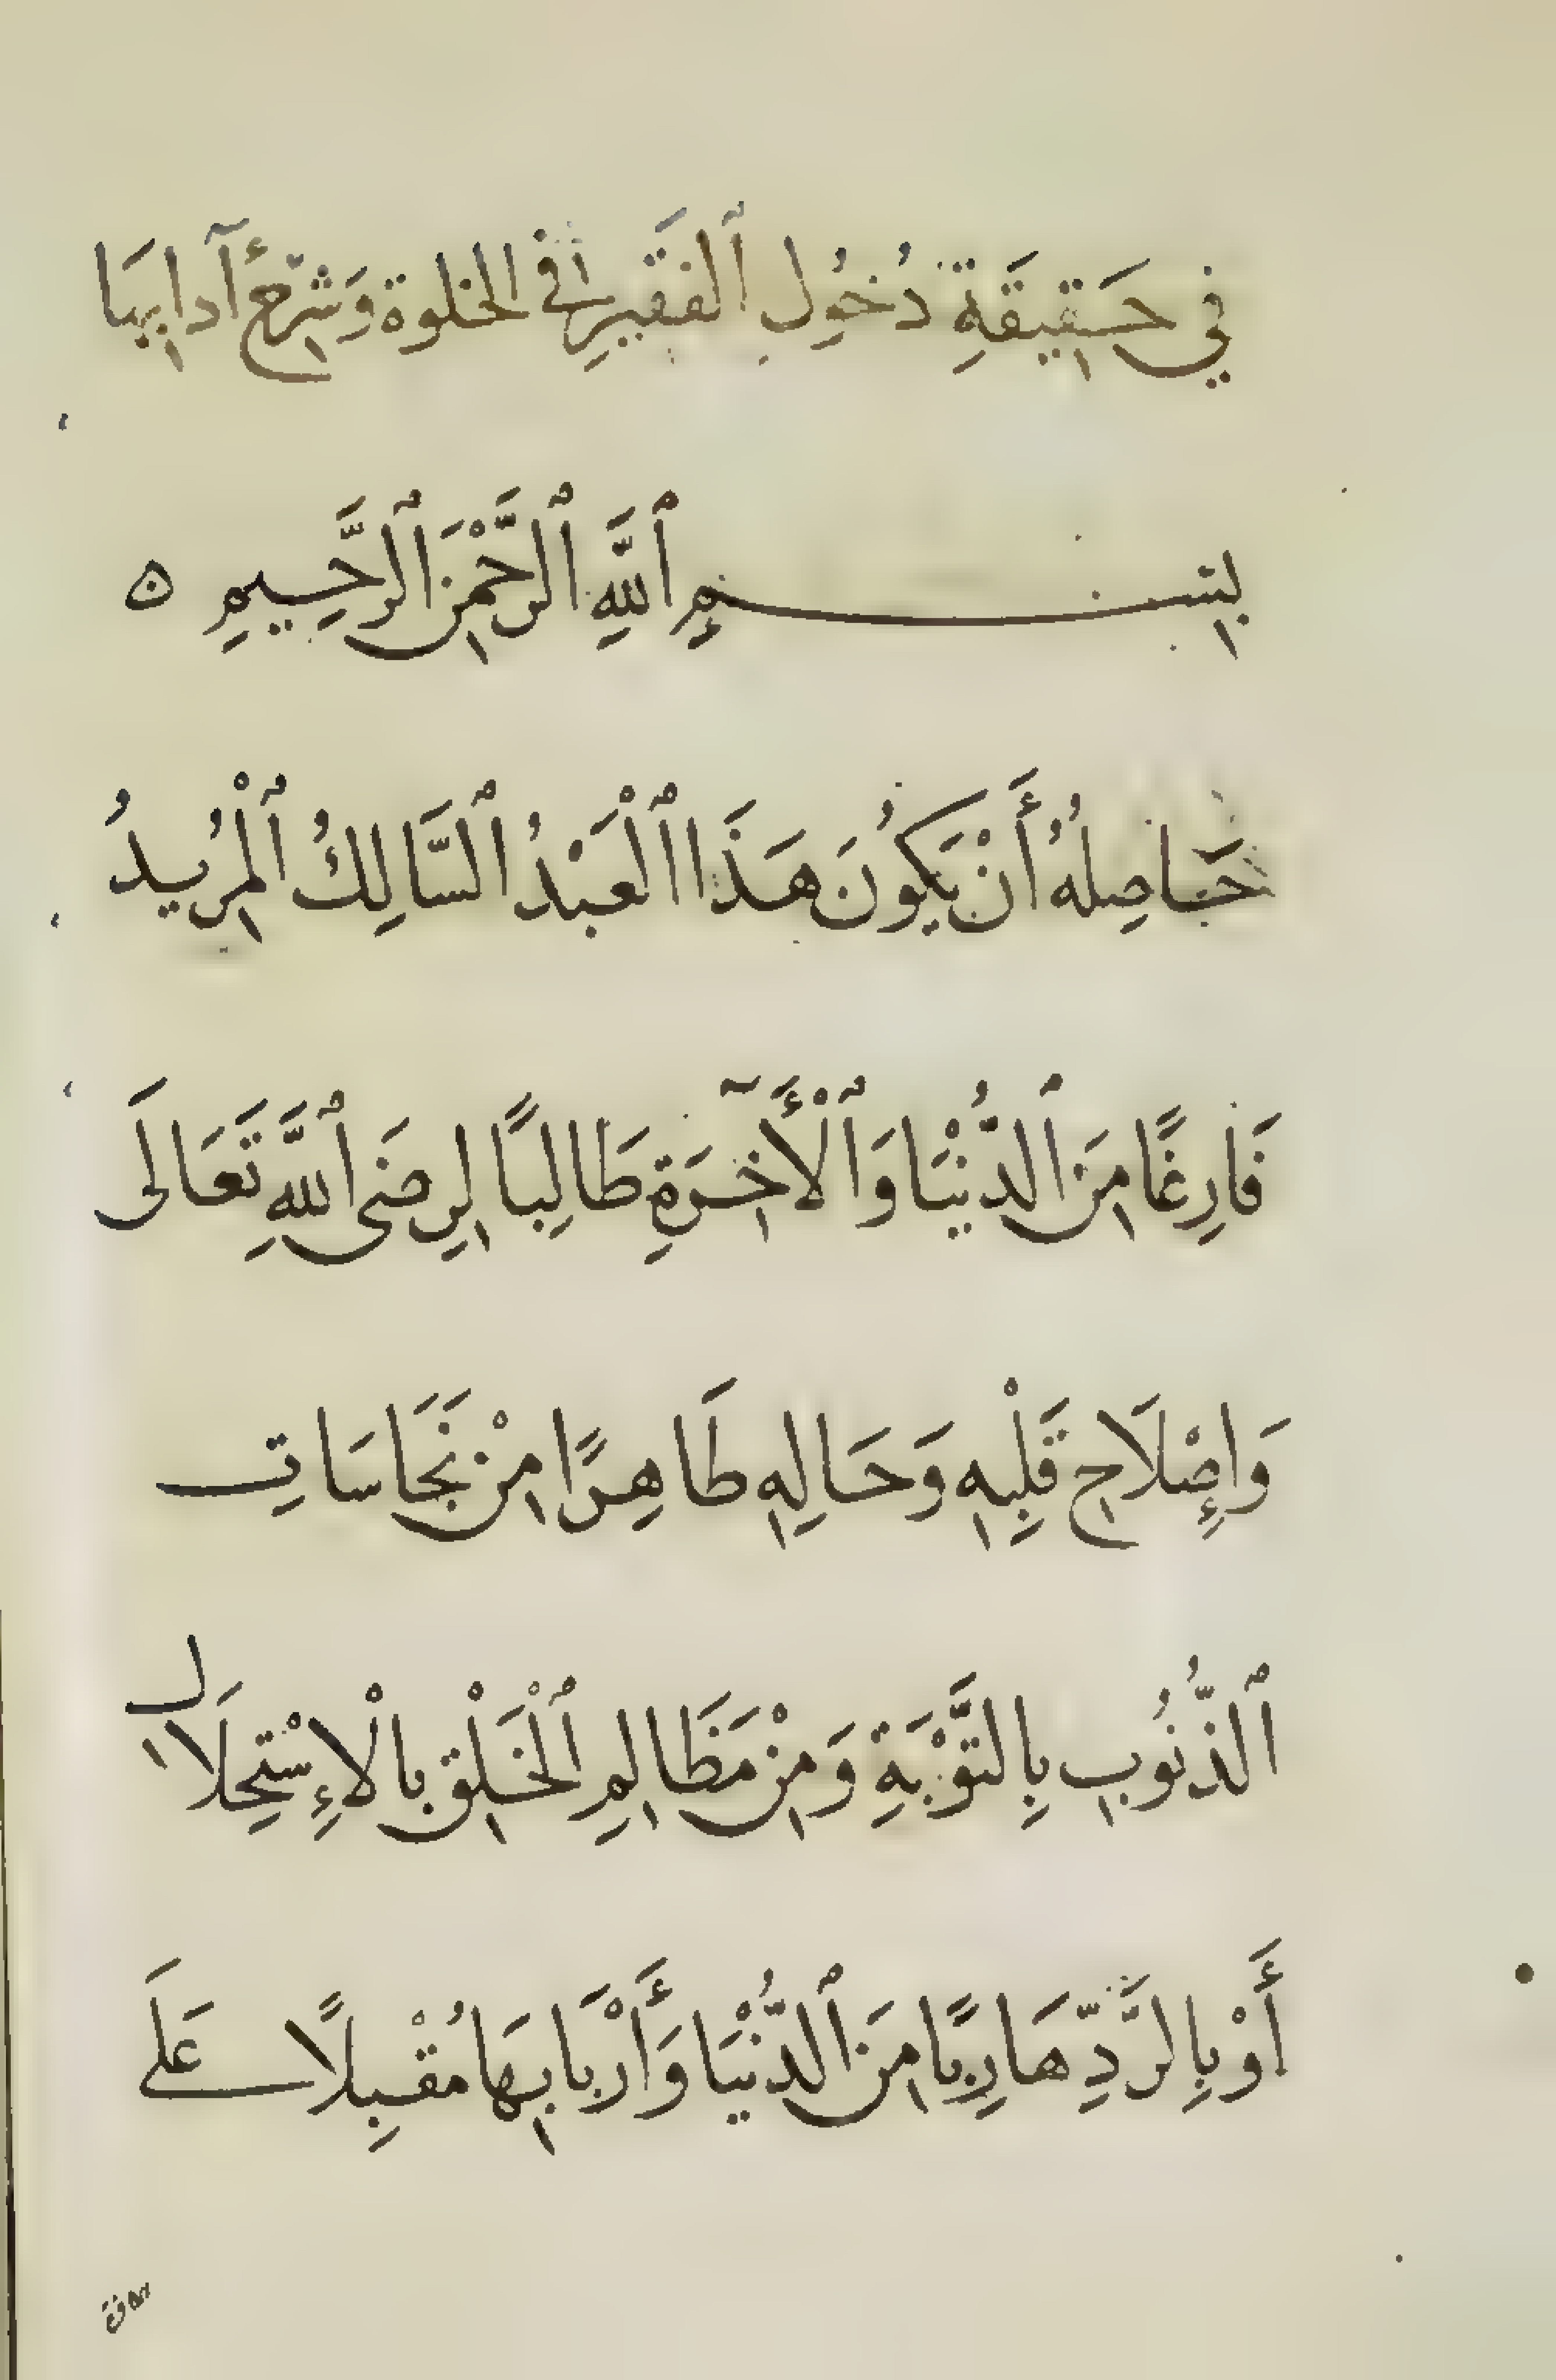 في حَقِيقَةِ دُخُولِ ٱلفَقِيرِ في الخلوة وَشَرْحِ آدابِهَا
بِسْمِ ٱللَّهِ ٱلرَّحْمَنِ ٱلرَّحِيمِ ن
حَاصِلُهُ أَنْ يَكُونَ هَذَا ٱلْعَبْدُ ٱلسَّالِكُ ٱلْمُرِيدُ
فَارِغًا مِنَ ٱلدُّنْيَا وَٱلْأَخِرَةِ طَالِبًا لِرِضَى ٱللَّهِ تَعَالَى
وَإِصْلَاحِ قَلْبِهِ وَحَالِهِ طَاهِرًا مِنْ نَجَاسَاتِ
ٱلذُّنُوبِ بِالتَّوْبَةِ وَمِنْ مَظَالِمِ ٱلْخَلْقِ بالْاءِسْتِحْلَالِ
أَوْ بِالرَّدِّ هَارِبًا مِنَ ٱلدُّنْيَا وَأَرْبَابِهَا مُقْبِلًا عَلَى